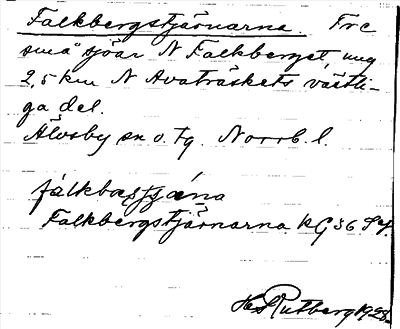 Falkbergstjärnarna. Tre
små sjöar N Falkberget, ung
2,5 km N Avaträskets västli-
ga del.
Älvsby sn o. tg. Norrb. l.
Falkbergstjärnarna RG 36
H. Rutberg 1928.